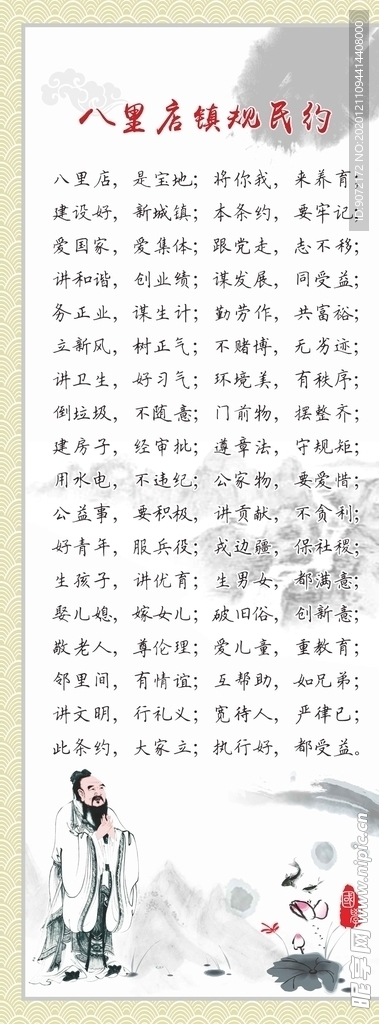 八里店镇规民约
八里店，是宝地；将你我，来养育；
建设好，新城镇；本条约，要牢记；
爱国家，爱集体；跟党走，志不移；
讲和谐，创业绩；谋发展，同受益；
务正业，谋生计；勤劳作，共富裕；
立新风，树正气；不赌博，无劣迹；
讲卫生，好习气；环境美，有秩序；
倒垃圾，不随意；门前物，摆整齐；
建房子，经审批；遵章法，守规矩；
用水电，不违纪；公家物，要爱惜；
公益事，要积极，讲贡献，不贪利；
好青年，服兵役；戎边疆，保社稷；
生孩子，讲优育；生男女，都满意；
娶儿媳，嫁女儿；破旧俗，创新意；
敬老人，尊伦理；爱儿童，重教育；
邻里间，有情谊；互帮助，如兄弟；
讲文明，行礼义；宽待人，严律己；
此条约，大家立；执行好，都受益。
昵享网 www.nipic.cn
ID:9072172 NO:20201211094414408000